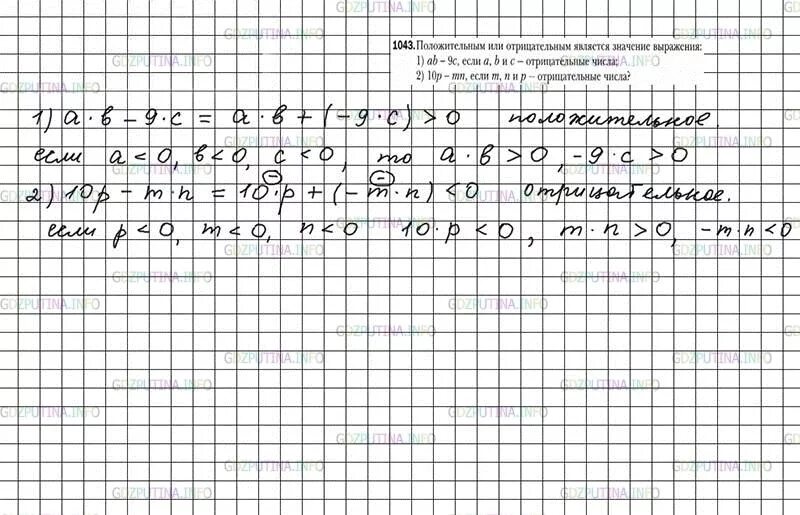 1043. Положительным или отрицательным является значение выражения:
1) ab – 9c, если a, b и c – отрицательные числа;
2) 10p – mn, если m, n и p – отрицательные числа?
1) a · b – 9 · c = a · b + (– 9 · c) > 0 положительное.
если a < 0, b < 0, c < 0, то a · b > 0, – 9 · c > 0
2) 10p – m · n = 10 · p + (– m · n) < 0 отрицательное.
если p < 0, m < 0, n < 0 10 · p < 0, m · n > 0, – m · n < 0
GDZPUTINA.INFO